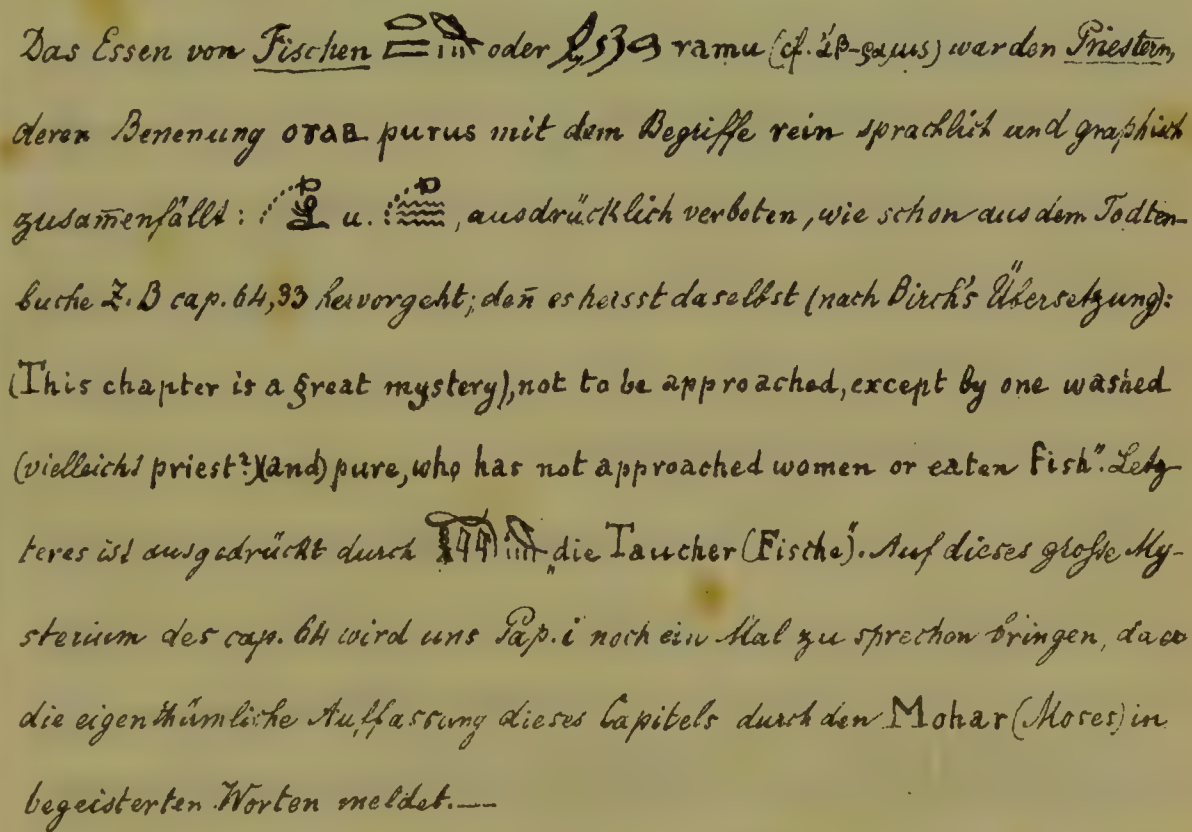 Das Essen von Fischen oder ramu (cf. ) war den Priestern,
deren Benenung ⲟⲩⲁⲃ purus mit dem Begriffe rein sprachlich und graphisch
zusam̄enfällt: u. , ausdrücklich verboten, wie schon aus dem Todten-
buche Z. B cap. 64,33 hervorgeht; den̄ es heisst daselbst (nach Birch's Übersetzung):
(This chapter is a great mystery), not to be approached, except by one washed
(vielleicht priest?)(and) pure, who has not approached women or eaten fish". Letz-
teres ist ausgedrückt durch „die Taucher (Fische)". Auf dieses große My-
sterium des cap. 64 wird uns Pap. i noch ein Mal zu sprechen bringen, da er
die eigenthümliche Auffassung dieses Capitels durch den Mohar (Moses) in
begeisterten Worten meldet.—